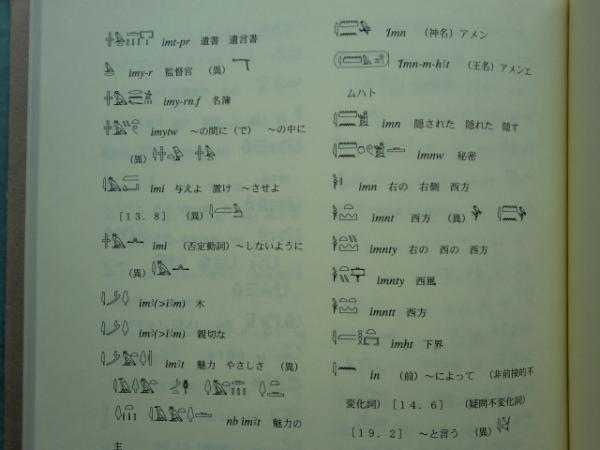 imt-pr 遺書 遺言書
imy-r 監督官 (異)
imy-rn.f 名簿
imytw ～の間に(で) ～の中に
(異)
imi 与えよ 置け ～させよ
[13. 8] (異)
imi (否定動詞) ～しないように
(異)
imꜣ(>iꜣm) 木
imꜣ(>iꜣm) 親切な
imꜣt 魅力 やさしさ (異)
nb imꜣt 魅力の
主
Imn (神名) アメン
Imn-m-ḥꜣt (王名) アメンエ
ムハト
imn 隠された 隠れた 隠す
imnw 秘密
imn 右の 右側 西方
imnt 西方 (異)
imnty 右の 西の 西方
imnty 西風
imntt 西方
imht 下界
in (前) ～によって (非前接的不
変化詞) [14. 6] (疑問不変化詞)
[19. 2] ～と言う (異)